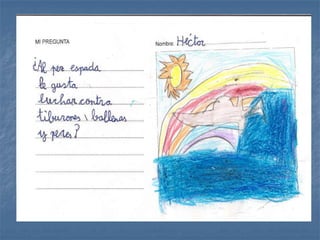 MI PREGUNTA
Nombre: Héctor
¿Al pez espada
le gusta
luchar contra
tiburones y ballenas
y peces?